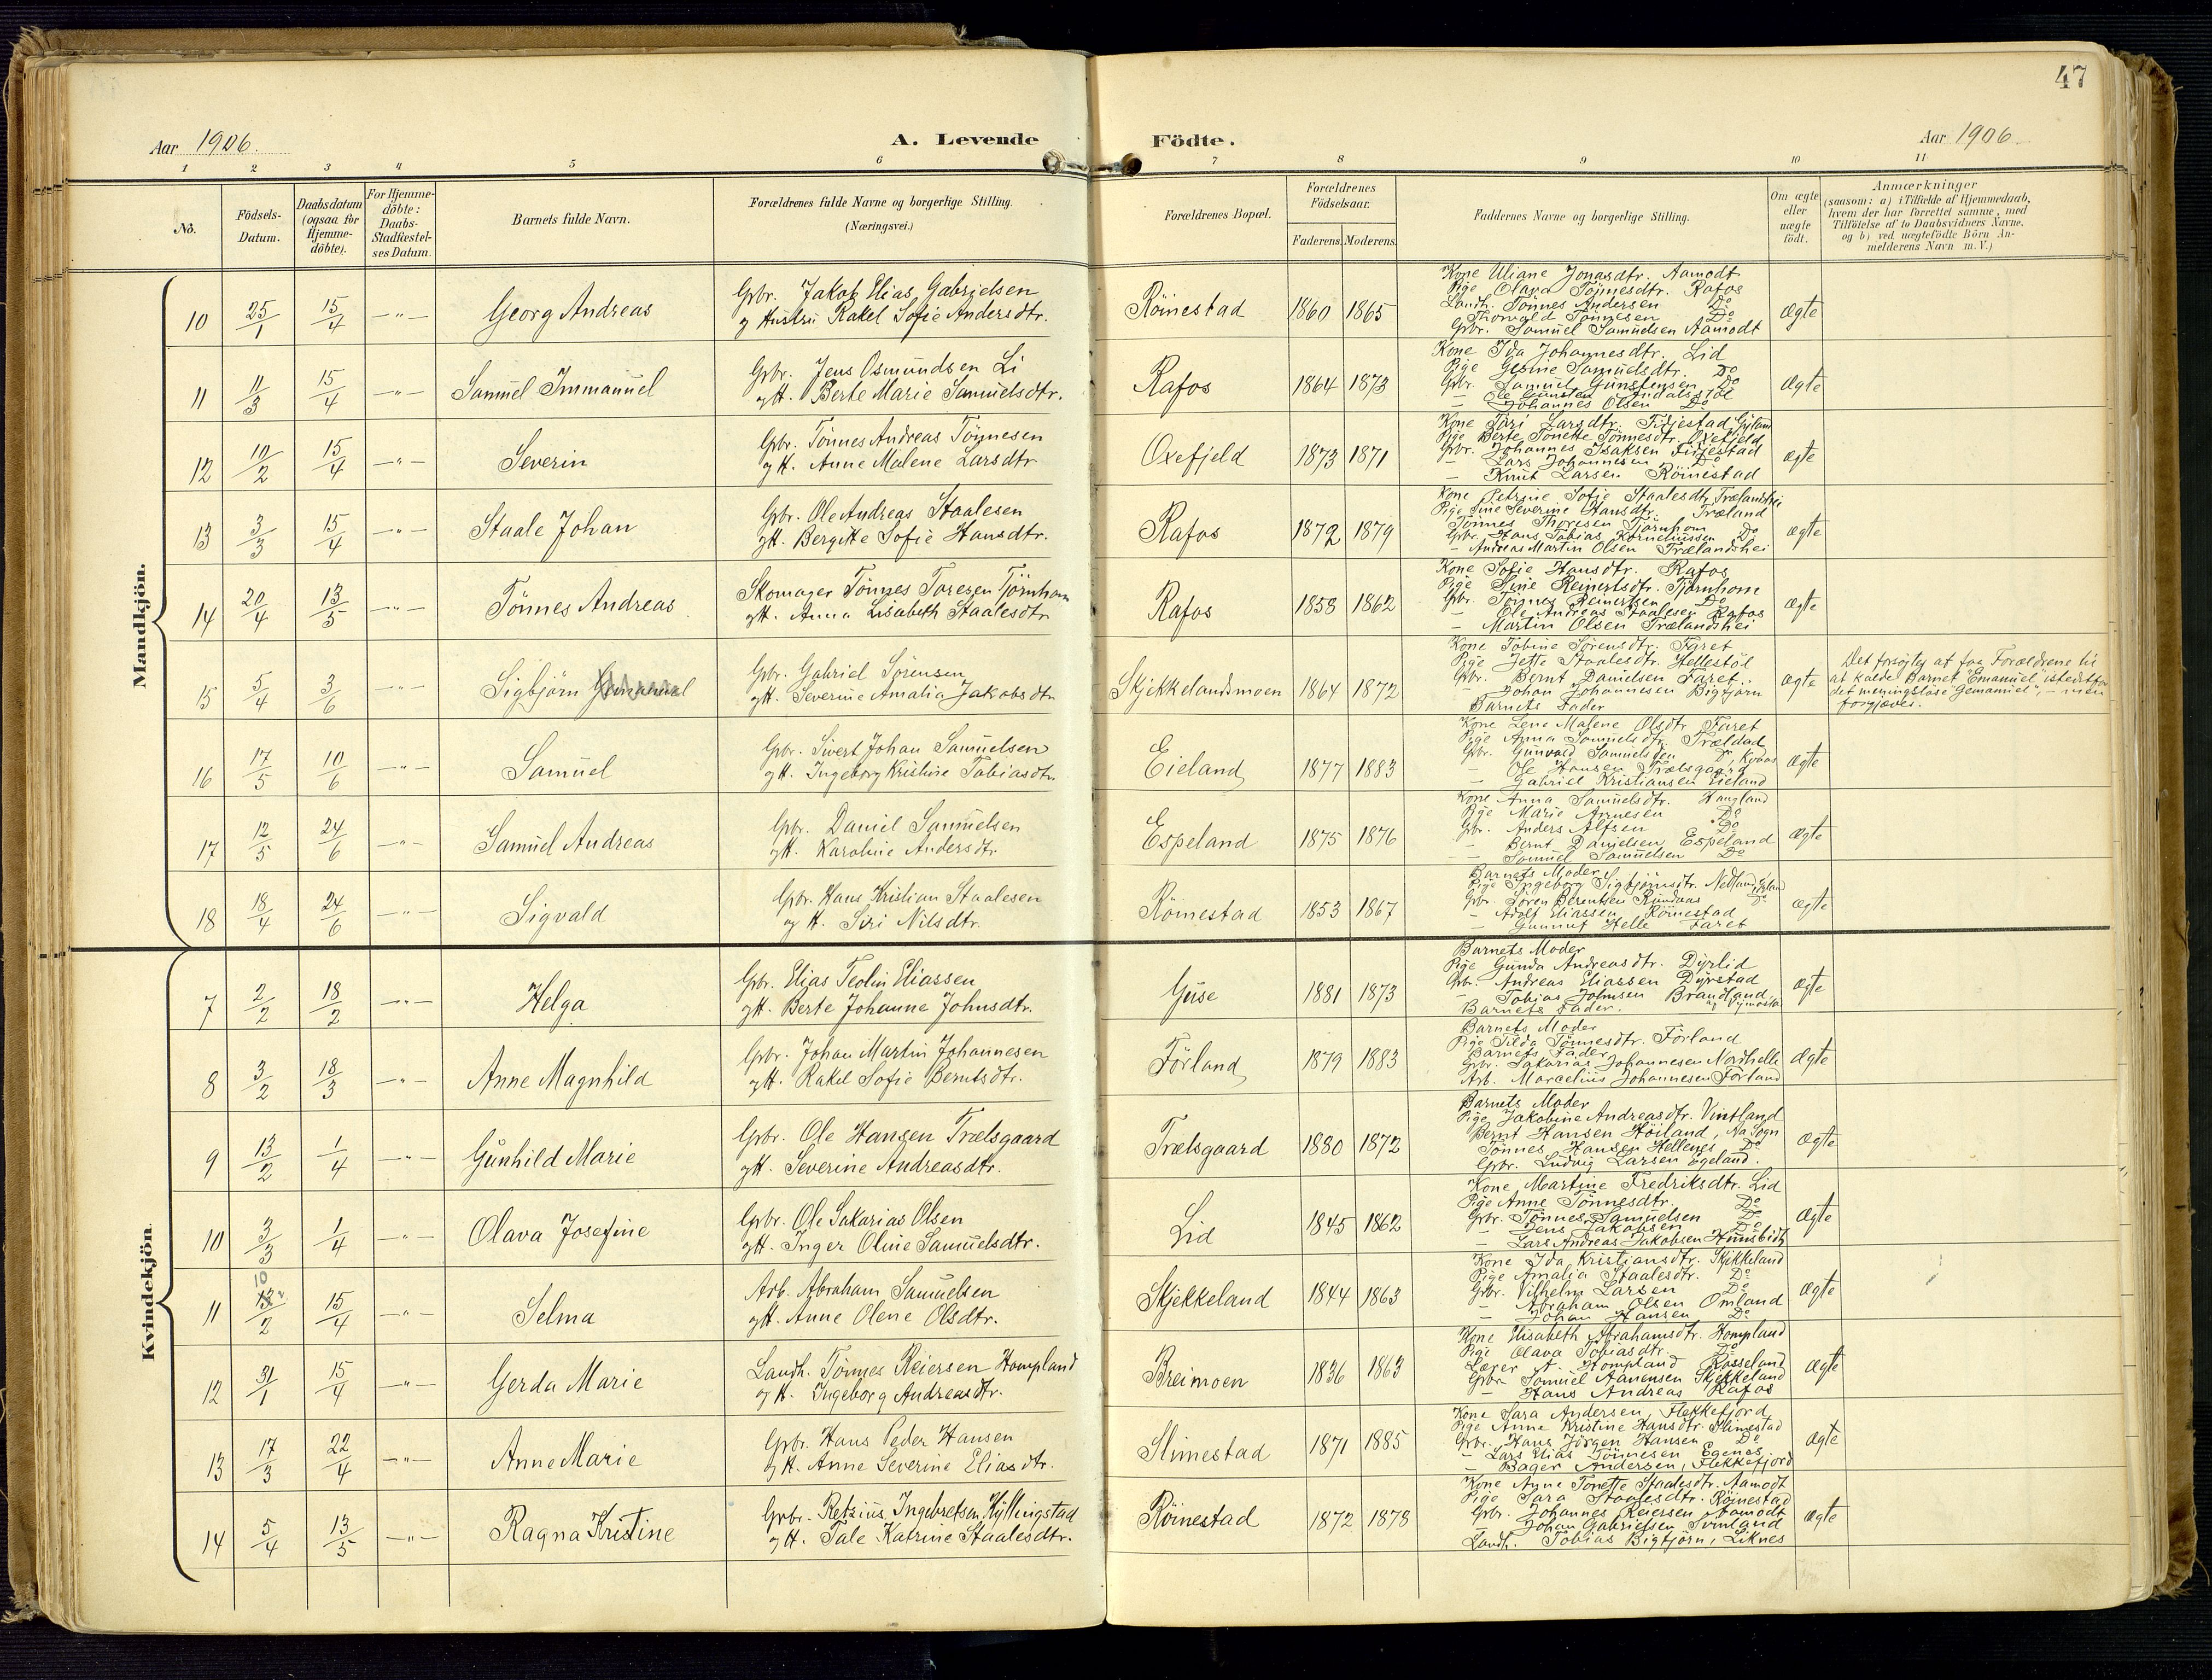 47
Aar 1906.
A. Levende Födte.
Aar 1906.
1 2 3 4 5 6 7 8 9 10 11
No.
Födsels-Datum.
Daabsdatum (ogsaa for Hjemme-döbte).
For Hjemme-döbte: Daabs-Stadfæstel-ses Datum.
Barnets fulde Navn.
Forældrenes fulde Navne og borgerlige Stilling. (Næringsvei.)
Forældrenes Bopæl.
Forældrenes Födselsaar.
Faderens. Moderens.
Faddernes Navne og borgerlige Stilling.
Om ægte eller uægte födt.
Anmærkninger
(saasom: a) i Tilfælde af Hjemmedaab,
hvem der har forrettet samme, med
Tilföielse af to Daabsvidners Navne,
og b) ved uægtefödte Börn An-
melderens Navn m. V.)
Mandkjön.
10 25/1 15/4 —"— Georg Andreas
Gbr. Jakob Elias Gabrielsen
og Hustru Rakel Sofie Andersdtr.
Röinestad 1860 1865
Kone Uliane Jonasdtr. Aamodt
Pige Olava Tönnesdtr. Rafos
Landh. Tönnes Andersen Do
Thorvald Tönnesen Do
Gbr. Samuel Samuelsen Aamodt
Ægte
11 11/3 15/4 —"— Samuel Immanuel
Gbr. Jens Osmundsen Li
og H. Berte Marie Samuelsdtr.
Rafos 1864 1873
Kone Ida Johannesdtr. Lid
Pige Gesine Samuelsdtr. Do
Gbr. Samuel Gunstensen Do
— Ole Gunsten Andalsstöl
— Johannes Olsen Do
Ægte
12 10/2 15/4 —"— Severin
Gbr. Tönnes Andreas Tönnesen
og H. Anne Malene Larsdtr
Oxefjeld 1873 1871
Kone Siri Larsdtr. Fidjestad, Gyland
Pige Berte Tonette Tönnesdtr. Oxefjeld
Gbr. Johannes Isaksen Fidjestad
— Lars Johannesen Do
— Knut Larsen Röinestad
Ægte
13 3/3 15/4 —"— Staale Johan
Gbr. Ole Andreas Staalesen
og H. Bergitte Sofie Hansdtr.
Rafos 1872 1879
Kone Petrine Sofie Staalesdtr. Trælandshei
Pige Sine Severine Hansdtr. Træland
Tönnes Thoresen Tjörnhom
Gbr. Hans Tobias Korneliussen Do
— Andreas Martin Olsen Trælandshei
Ægte
14 20/4 13/5 —"— Tönnes Andreas
Skomager Tönnes Toresen Tjörnhom
og H. Anna Lisabeth Staalesdtr
Rafos 1858 1862
Kone Sofie Hansdtr. Rafos
Pige Sine Reinertsdtr. Tjörnhom
Gbr. Tönnes Reinertsen Do
— Ole Andreas Staalesen Rafos
— Martin Olsen Trælandshei
Ægte
15 5/4 3/6 —"— Sigbjörn Gemanuel
Gbr. Gabriel Sörensen
og H. Severine Amalia Jakobsdtr
Skjekkelandsmoen 1864 1872
Kone Tobine Sörensdtr. Faret
Pige Jette Staalesdtr. Hellestöl
Gbr. Bernt Danielsen Faret
— Johan Johannesen Bigtjörn
Barnets Fader
Ægte
Det forsögtes at faa Forældrene til
at kalde Barnet "Emanuel" istedetfor
det meningslöse "Gemanuel", — men
forgjæves.
16 17/5 10/6 —"— Samuel
Gbr. Sivert Johan Samuelsen
og H. Ingeborg Kristine Tobiasdtr
Eieland 1877 1883
Kone Lene Malene Olsdtr Faret
Pige Anna Samuelsdtr. Trældal
Gbr. Gunvald Samuelsen
— Ole Hansen Trælsgaard
— Gabriel Kristiansen Eieland
Ægte
17 12/5 24/6 —"— Samuel Andreas
Gbr. Daniel Samuelsen
og H. Karoline Andersdtr.
Espeland 1875 1876
Kone Anna Samuelsdtr. Haugland
Pige Marie Arnesen Do
Gbr. Anders Alfsen Do
— Bernt Danielsen Espeland
— Samuel Samuelsen Do
Ægte
18 18/4 24/6 —"— Sigvald
Gbr. Hans Kristian Staalesen
og H. Siri Nilsdtr.
Römestad 1853 1867
Barnets Moder
Pige Ingeborg Sigbjörnsdtr. Netland
Gbr. Sören Berentsen Rundaas
— Adolf Eliassen Römestad
— Gunnuf Helle Faret
Ægte
Kvindekjön
7 2/2 18/2 —"— Helga
Gbr. Elias Teolin Eliassen
og H. Berte Johanne Johnsdtr.
Guse 1881 1873
Barnets Moder
Pige Gunda Andreasdtr. Dyrlid
Gbr. Andreas Eliassen Dyrstad
— Tobias Johnsen Brandland
Barnets Fader.
Ægte
8 3/2 18/3 —"— Anne Magnhild
Gbr. Johan Martin Johannesen
og H. Rakel Sofie Berntsdtr.
Förland 1879 1883
Barnets Moder
Pige Tilda Tönnesdtr. Förland
Barnets Fader
Gbr. Sakarias Johannesen Nordhelle
Arb. Marcelius Johannesen Förland
Ægte
9 13/2 1/4 —"— Gunhild Marie
Gbr. Ole Hansen Trælsgaard
og H. Severine Andreasdtr.
Trælsgaard 1880 1872
Barnets Moder
Pige Jakobine Andreasdtr. Vintland
Bernt Hansen Höiland, Na Sogn
Tönnes Hansen Hellenes Do
Gbr. Ludvig Larsen Egeland.
Ægte
10 3/3 1/4 —"— Olava Josefine
Gbr. Ole Sakarias Olsen
og H. Inger Oline Samuelsdtr.
Lid 1845 1862
Kone Martine Fredriksdtr. Lid
Pige Anne Tönnesdtr. Do
Gbr. Tönnes Samuelsen Do
— Jens Jakobsen Do
— Lars Andreas Jakobsen Hunsbidt
Ægte
11 10/2 15/4 —"— Selma
Arb. Abraham Samuelsen
og H. Anne Olene Olsdtr.
Skjekkeland 1844 1863
Kone Ida Kristiansdtr. Skjekkeland
Pige Amalia Staalesdtr. Do
Gbr. Vilhelm Larsen Do
— Abraham Olsen Omland
— Johan Hansen Do
Ægte
12 31/1 15/4 —"— Gerda Marie
Landh. Tönnes Reiersen Hompland
og H. Ingeborg Andreasdtr.
Breimoen 1836 1863
Kone Elisabeth Abrahamsdtr. Hompland
Pige Olava Tobiasdtr. Do
Lærer A. Hompland Rosseland
Gbr. Samuel Aanensen Skjekkeland
— Hans Andreas Rafos
Ægte
13 17/3 22/4 —"— Anne Marie
Gbr. Hans Peder Hansen
og H. Anne Severine Eliasdtr.
Slimestad 1871 1885
Kone Sara Andersen, Flekkefjord
Pige Anne Kristine Hansdtr. Slimestad
Gbr. Hans Jörgen Hansen Do
— Lars Elias Tönnesen Egenes
— Bager Andersen, Flekkefjord
Ægte
14 5/4 13/5 —"— Ragna Kristine
Gbr. Retzius Ingebretsen Kyllingstad
og H. Tale Katrine Staalesdtr.
Röinestad 1872 1878
Kone Anne Tonette Staalesdtr. Aamodt
Pige Sara Staalesdtr. Röinestad
Gbr. Johannes Reiersen Aamodt
— Johan Gabrielsen Svinland
Landh. Tobias Bigtjörn, Liknes
Ægte